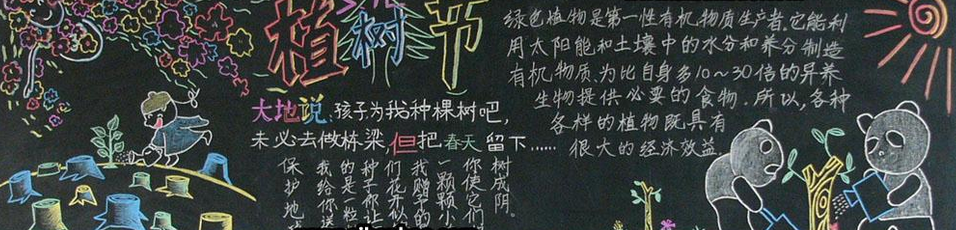 植树节
大地说,孩子为我种棵树吧,
未必去做栋梁,但把春天留下……
绿色植物是第一性有机物质生产者。它能利
用太阳能和土壤中的水分和养分制造
有机物质,为比自身多10～30倍的异养
生物提供必要的食物。所以,各种
各样的植物既具有
很大的经济效益。
树成阴。
你使它们
一颗颗小
我赠予的
们花开似
种子你让
我的是一粒
我给你送
保护地